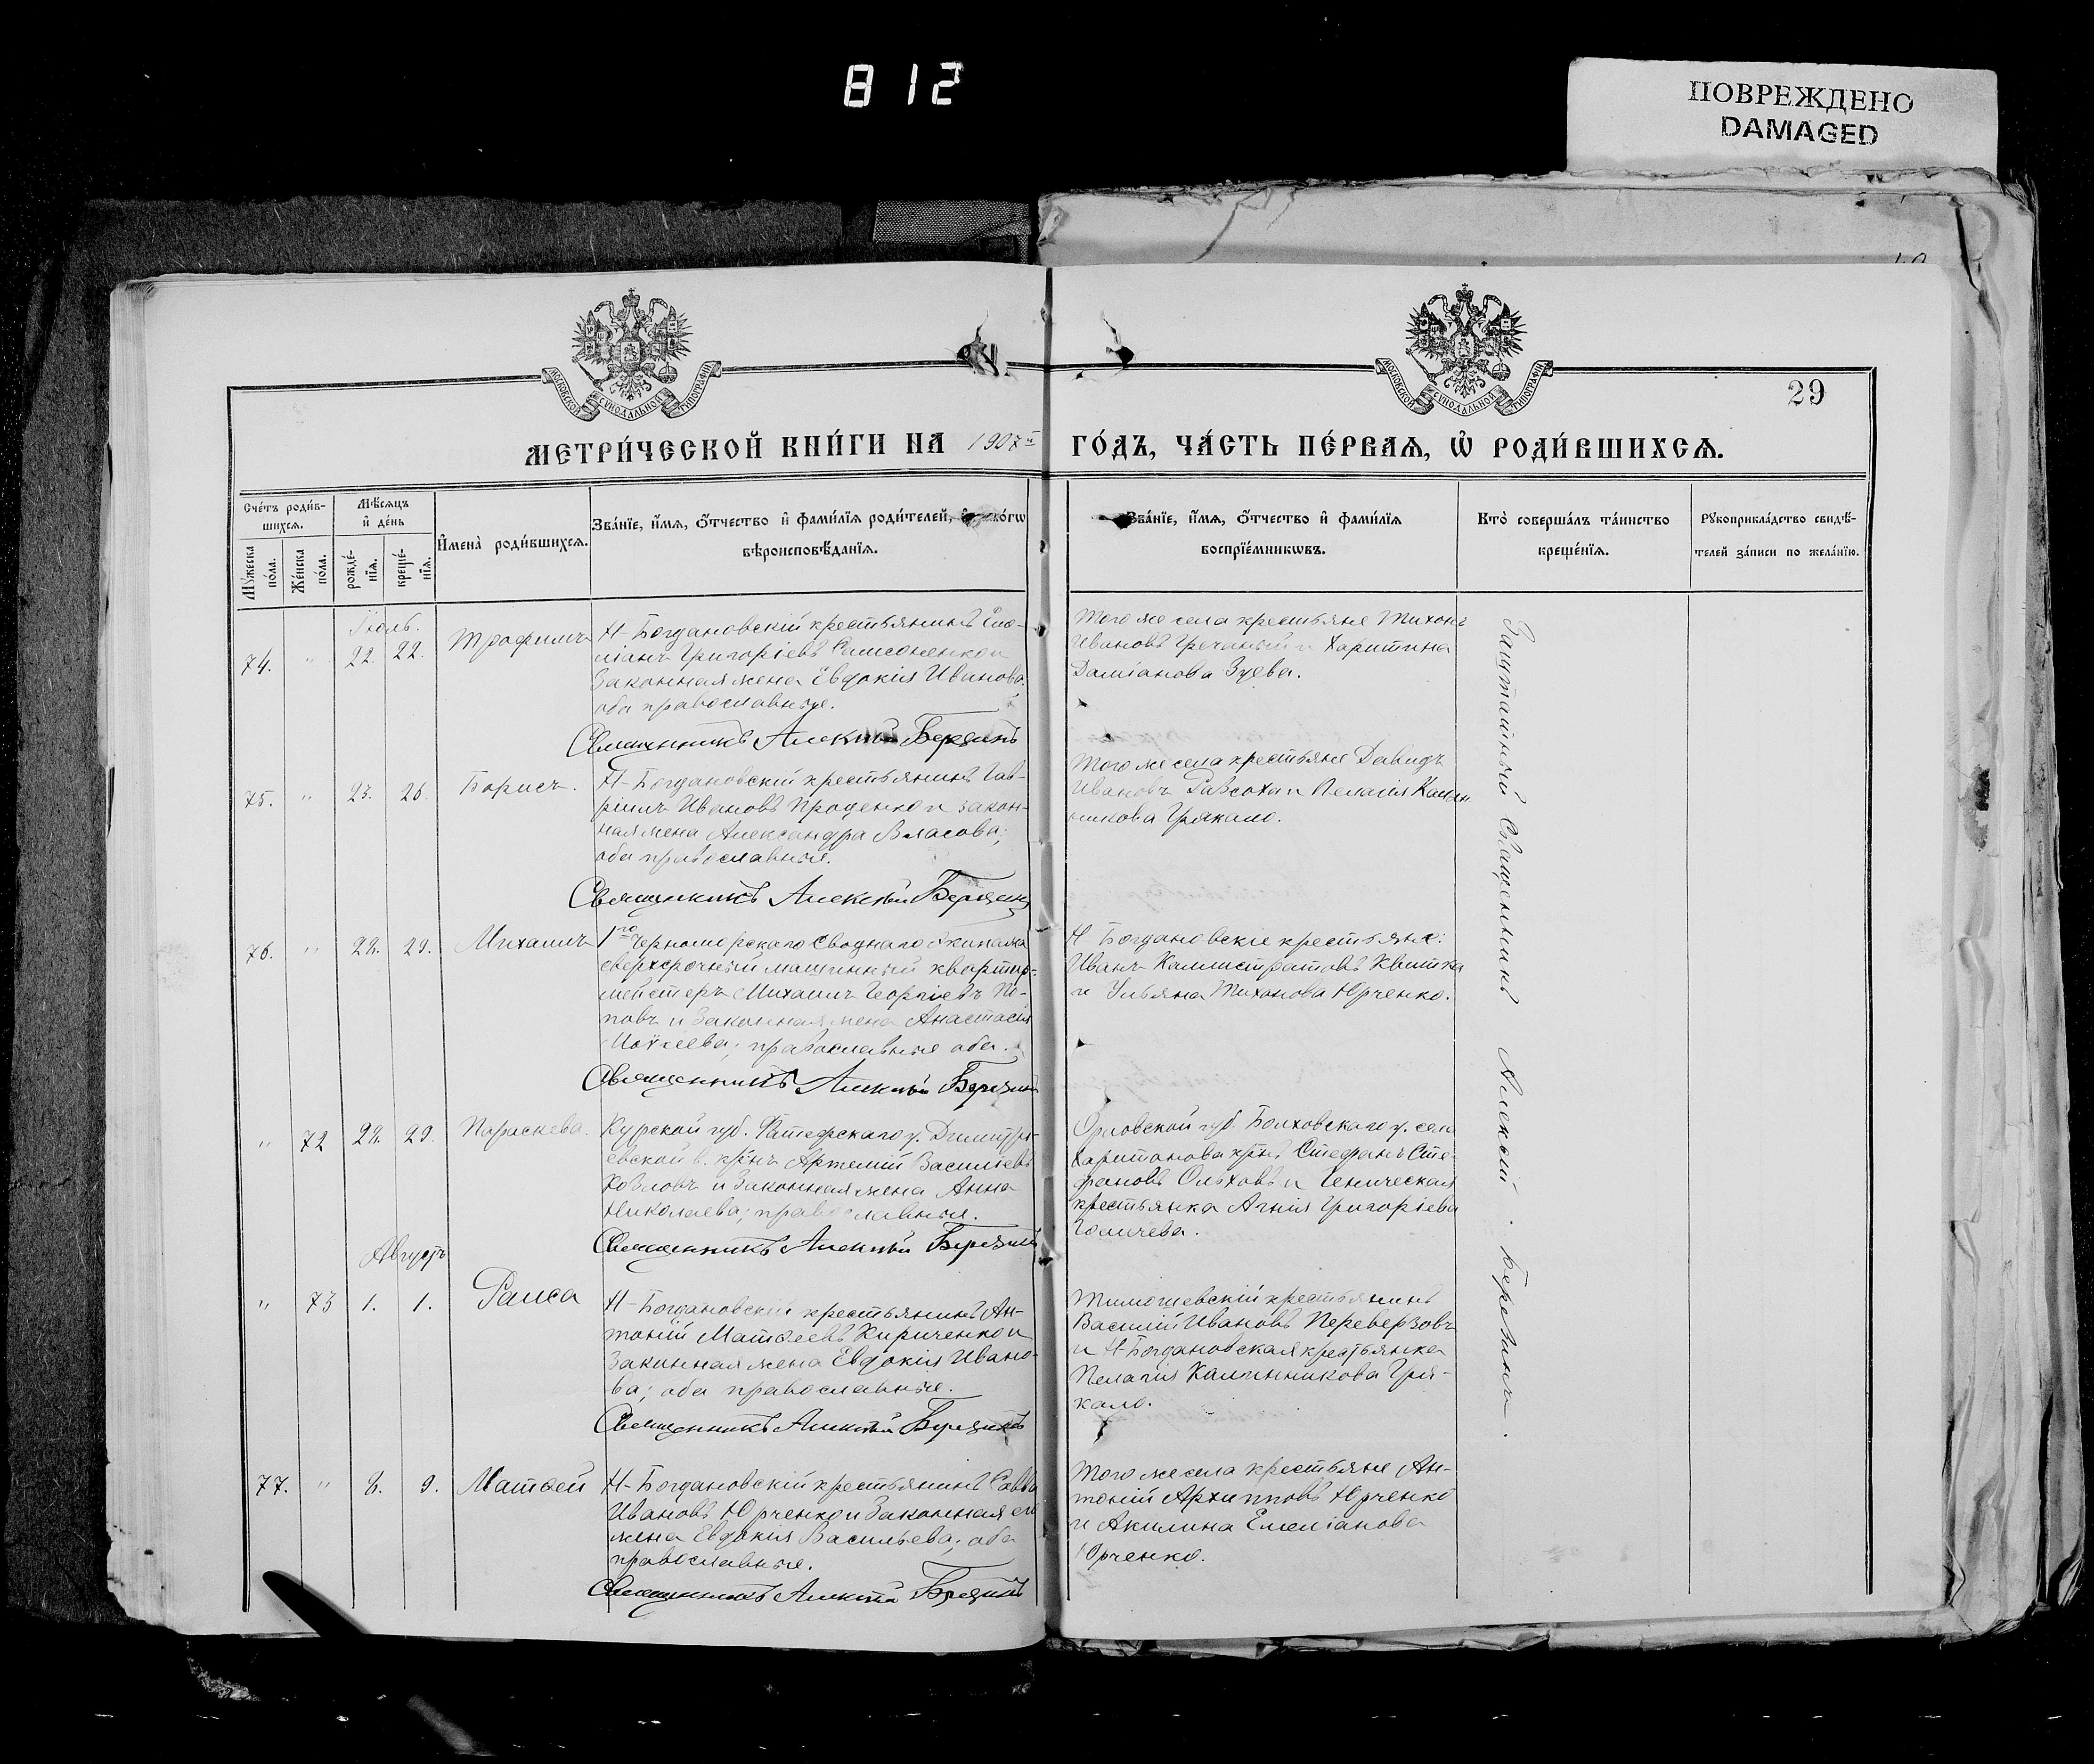 812
ПОВРЕЖДЕНО
DAMAGED
МОСКОВСКОЙ СѴНОДАЛЬНОЙ ТИПОГРАФІИ
МОСКОВСКОЙ СѴНОДАЛЬНОЙ ТИПОГРАФІИ
29
МЕТРИ́ЧЕСКОЙ КНИ́ГИ НА 1907й ГО́ДЪ, ЧА́СТЬ ПЕ́РВАѦ, Ѡ҆ РОДИ́ВШИХСѦ.
Сче́тъ роди́в-
шихсѧ.
Мѣ́сѧцъ
и҆ де́нь
Мꙋ́жеска
по́ла.
Же́нска
по́ла.
рожде́-
нїѧ.
креще́-
нїѧ.
И҆мена̀ роди́вшихсѧ.
Зва́нїе, и҆́мѧ, ѻ҆́тчество и҆ фами́лїѧ роди́телей, и҆
вѣроисповѣ́данїѧ.
Зва́нїе, и҆́мѧ, ѻ҆́тчество и҆ фами́лїѧ
воспрїе́мникѡвъ.
Кто̀ соверша́лъ та́инство
креще́нїѧ.
Рꙋкоприкла́дство свидѣ́-
телей за́писи по жела́нїю.
Іюль.
74. " 22. 22. Трофимъ
Н-Богдановскій крестьянинъ
Григоріевъ Самсоненко и
Законная жена Евдокія Иванова.
оба православные.
Священникъ Алексѣй Березинъ
Того же села крестьяне Тихонъ
Ивановъ Гречаный и Харитина
Даміанова Зуева.
75. " 23. 26. Борисъ.
Н-Богдановскій крестьянинъ Гав-
ріилъ Ивановъ Проценко и закон-
ная жена Александра Власова;
оба православные.
Священникъ Алексѣй Березинъ
Того же села крестьяне Давидъ
Ивановъ и Пелагія Калин
никова Грякало.
76. " 28. 29. Михаилъ
1го Черноморскаго Своднаго Экипажа
сверхсрочный машинный квартир-
мейстеръ Михаилъ Георгіевъ По-
повъ и Законная жена Анастасія
Моѵсеева; православные оба.
Священникъ Алексѣй Березинъ
Н Богдановскіе крестьяне:
Иванъ Каллистратовъ Квитка
и Ульяна Тихонова Юрченко.
" 72 28. 29. Параскева.
Курской губ. Фатежскаго у. Дмитрі-
евской в. кр-нъ Артемій Василіевъ
Козловъ и Законная жена Анна
Николаева; православные.
Священникъ Алексѣй Березинъ
Орловской губ. Болховскаго у. села
Харитонова кр-нъ Стефанъ Сте-
фановъ Ольховъ и Геническая
крестьянка Агнія Григоріева
Голичева.
Августъ
" 73 1. 1. Раиса
Н-Богдановскій крестьянинъ Ан-
тоній Матѳеевъ Кириченко и
Законная жена Евдокія Ивано-
ва; оба православные.
Священникъ Алексѣй Березинъ
Тимошевскій крестьянинъ
Василій Ивановъ Переверзовъ
и Н-Богдановская крестьянка
Пелагія Калинникова Гря-
кало.
77. " 8. 9. Матѳей
Н-Богдановскій крестьянинъ Савва
Ивановъ Юрченко и Законная его
жена Евдокія Васильева; оба
православные.
Священникъ Алексѣй Березинъ
Того же села крестьяне Ан-
тоній Архипповъ Юрченко
и Акилина Емеліанова
Юрченко.
Заштатный Священникъ Алексій Березинъ.